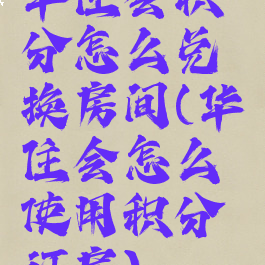 华住会积
分怎么兑
换房间(华
住会怎么
使用积分
订房)